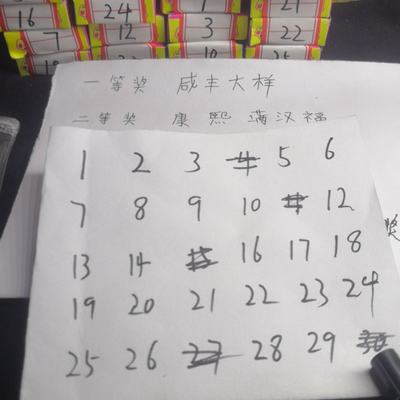 16 24 21
7 12 22
3
10
一等奖 咸丰大样
二等奖 康熙满汉福
奖
1 2 3 4 5 6
7 8 9 10 12
13 14 16 17 18
19 20 21 22 23 24
25 26 27 28 29 30